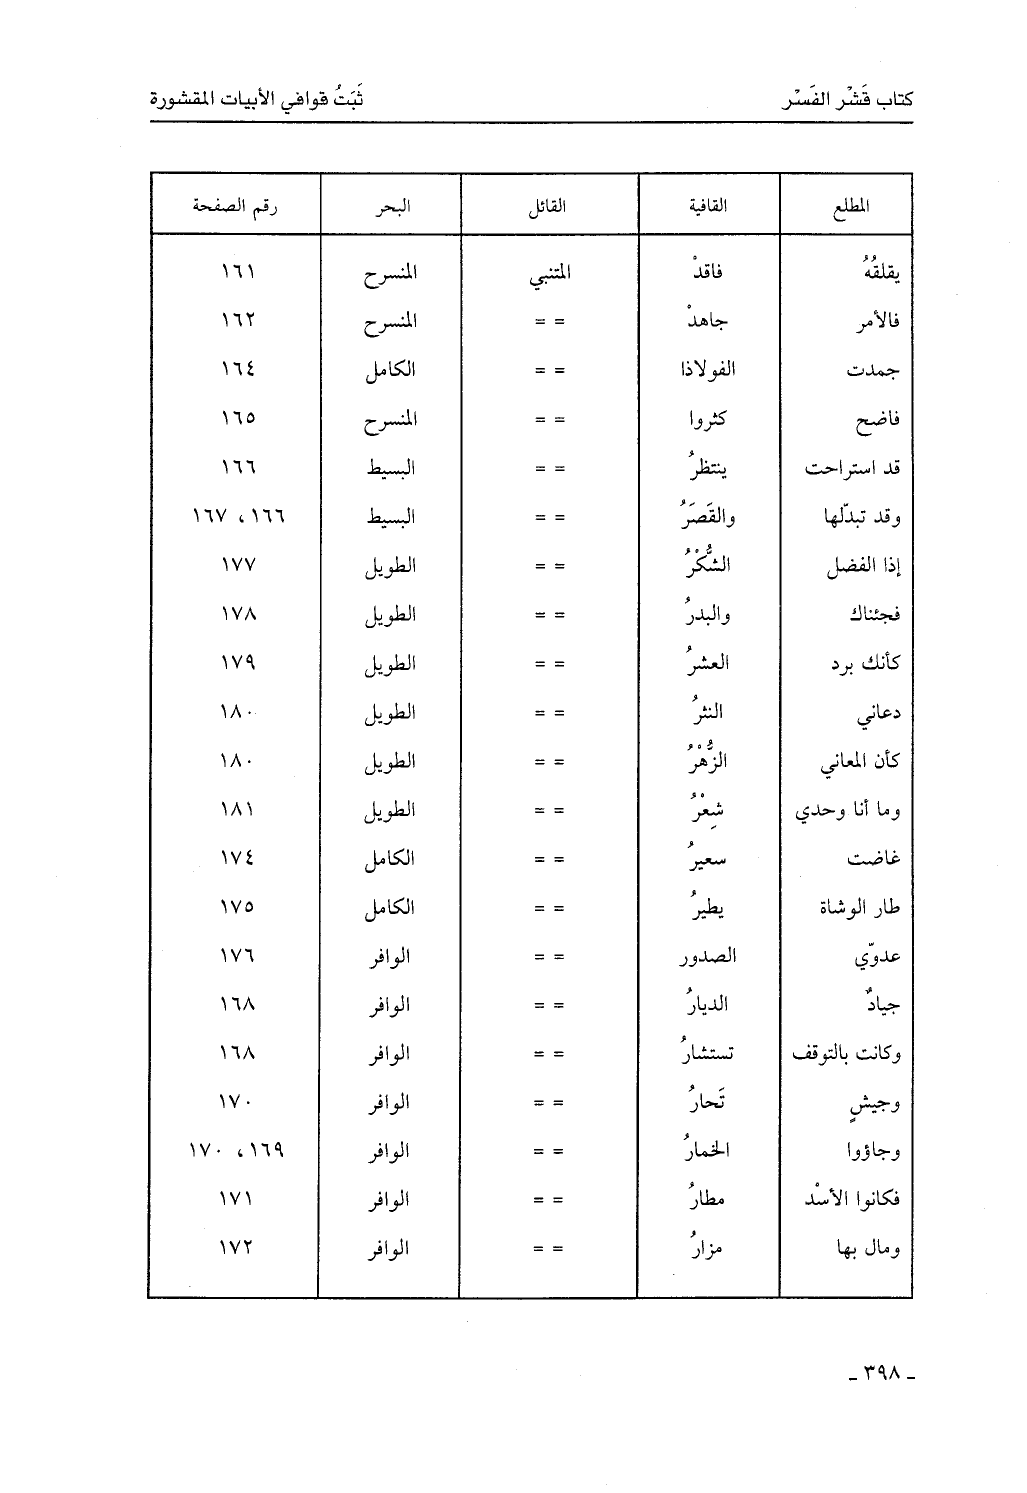 كتاب قَشْر الفَسْر ثَبَتُ قوافي الأبيات المقشورة
المطلع القافية القائل البحر رقم الصفحة
يقلقُهُ فاقدْ المتنبي المنسرح ١٦١
فالأمر جاهدْ = = المنسرح ١٦٢
جمدت الفولاذا = = الكامل ١٦٤
فاضح كثروا = = المنسرح ١٦٥
قد استراحت ينتظرُ = = البسيط ١٦٦
وقد تبدّلها والقَصَرُ = = البسيط ١٦٦، ١٦٧
إذا الفضل الشُّكْرُ = = الطويل ١٧٧
فجئناك والبدرُ = = الطويل ١٧٨
كأنك برد العشرُ = = الطويل ١٧٩
دعاني النثرُ = = الطويل ١٨٠
كأن المعاني الزُّهْرُ = = الطويل ١٨٠
وما أنا وحدي شِعْرُ = = الطويل ١٨١
غاضت سعيرُ = = الكامل ١٧٤
طار الوشاة يطيرُ = = الكامل ١٧٥
عدوّي الصدور = = الوافر ١٧٦
جيادٌ الديارُ = = الوافر ١٦٨
وكانت بالتوقف تستشارُ = = الوافر ١٦٨
وجيشٍ تَحارُ = = الوافر ١٧٠
وجاؤوا الخمارُ = = الوافر ١٦٩، ١٧٠
فكانوا الأسْد مطارُ = = الوافر ١٧١
ومال بها مزارُ = = الوافر ١٧٢
ـ ٣٩٨ ـ